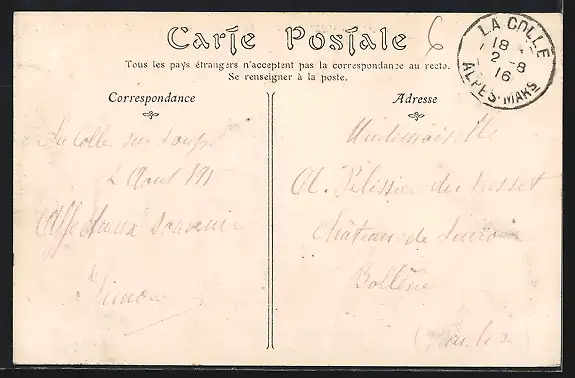 Carte Postale
6
Tous les pays étrangers n'acceptent pas la correspondance au recto.
Se renseigner à la poste.
LA COLLE
18
2-8
16
ALPES-MARMES
Correspondance
La Colle sur Loup
2 Aout 191
Affectueux Souvenir
Simone
Adresse
Mademoiselle
Pélissier du
Château de
Bollène